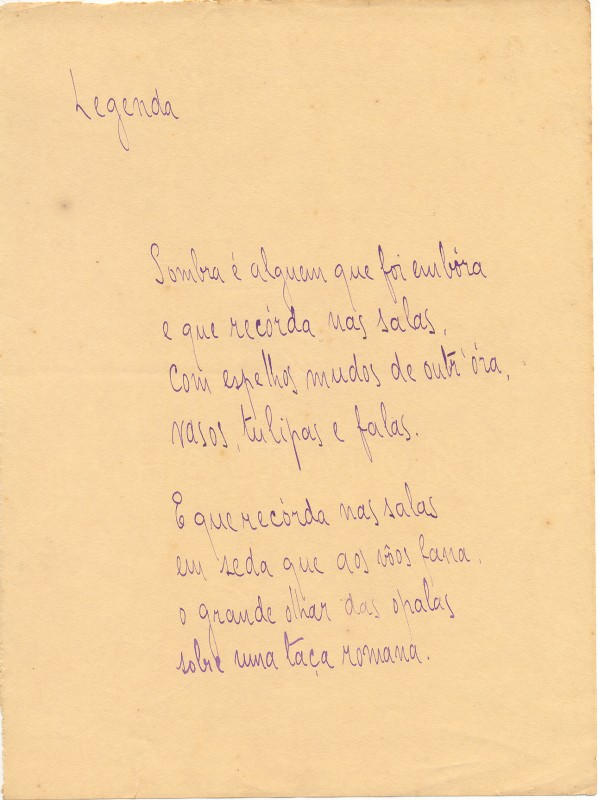 Legenda
Sombra é alguem que foi embóra
e que recórda nas salas,
com espelhos mudos de outr'óra,
vasos, tulipas e falas.
E que recórda nas salas
em seda que aos vôos fana,
o grande olhar das opalas
sobre uma taça romana.